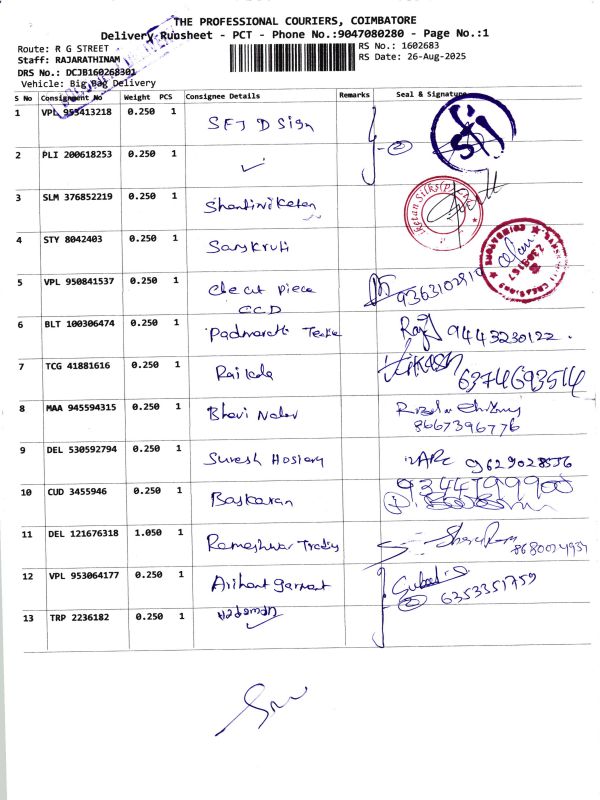 THE PROFESSIONAL COURIERS, COIMBATORE
Delivery Runsheet - PCT - Phone No.:9047080280 - Page No.:1
Route: R G STREET
Staff: RAJARATHINAM
DRS No.: DCJB160268301
Vehicle: Big Bag Delivery
RS No.: 1602683
RS Date: 26-Aug-2025
S No Consignment No Weight PCS Consignee Details Remarks Seal & Signature
1 VPL 953413218 0.250 1 SFJ D Sign
2 PLI 200618253 0.250 1 ✓ 2
3 SLM 376852219 0.250 1 Shantiniketan
4 STY 8042403 0.250 1 Sanskruti
5 VPL 950841537 0.250 1 cle cut piece
CCD
6 BLT 100306474 0.250 1 Padmavathi 9443230122.
7 TCG 41881616 0.250 1 VIKASH 6374693514
8 MAA 945594315 0.250 1
8667396776
9 DEL 530592794 0.250 1 Suresh Hosiery 9629028556
10 CUD 3455946 0.250 1 Baskaran 9344799900
11 DEL 121676318 1.050 1 Rameshwar Trading
12 VPL 953064177 0.250 1 Arihant garment
2 6353351759
13 TRP 2236182 0.250 1